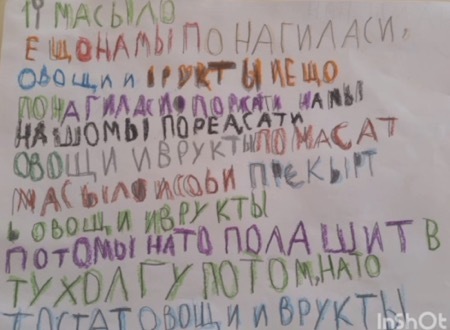 1Ч МАСЫЛО
ЕЩОНАМЫПОНАГИЛАСИ,
ОВОЩИИ ВРУКТЫ ИЕЩО
ПОНАГИЛАСИ ПОРКАТИ НАМЫ
НАШОМЫ ПОРЕДСАТИ
ОВОЩИ ИВРУКТЫ ПОМАСАТ
МАСЫЛО ИСОБИ ПРЕКЫРТ
Ь ОВОЩИ ИВРУКТЫ
ПОТОМЫНАТО ПОЛАШИТ В
ТУХОЛГУ ПОТОМ,НАТО
ТОСТАТ ОВОЩИ И ВРУКТЫ
InShOt